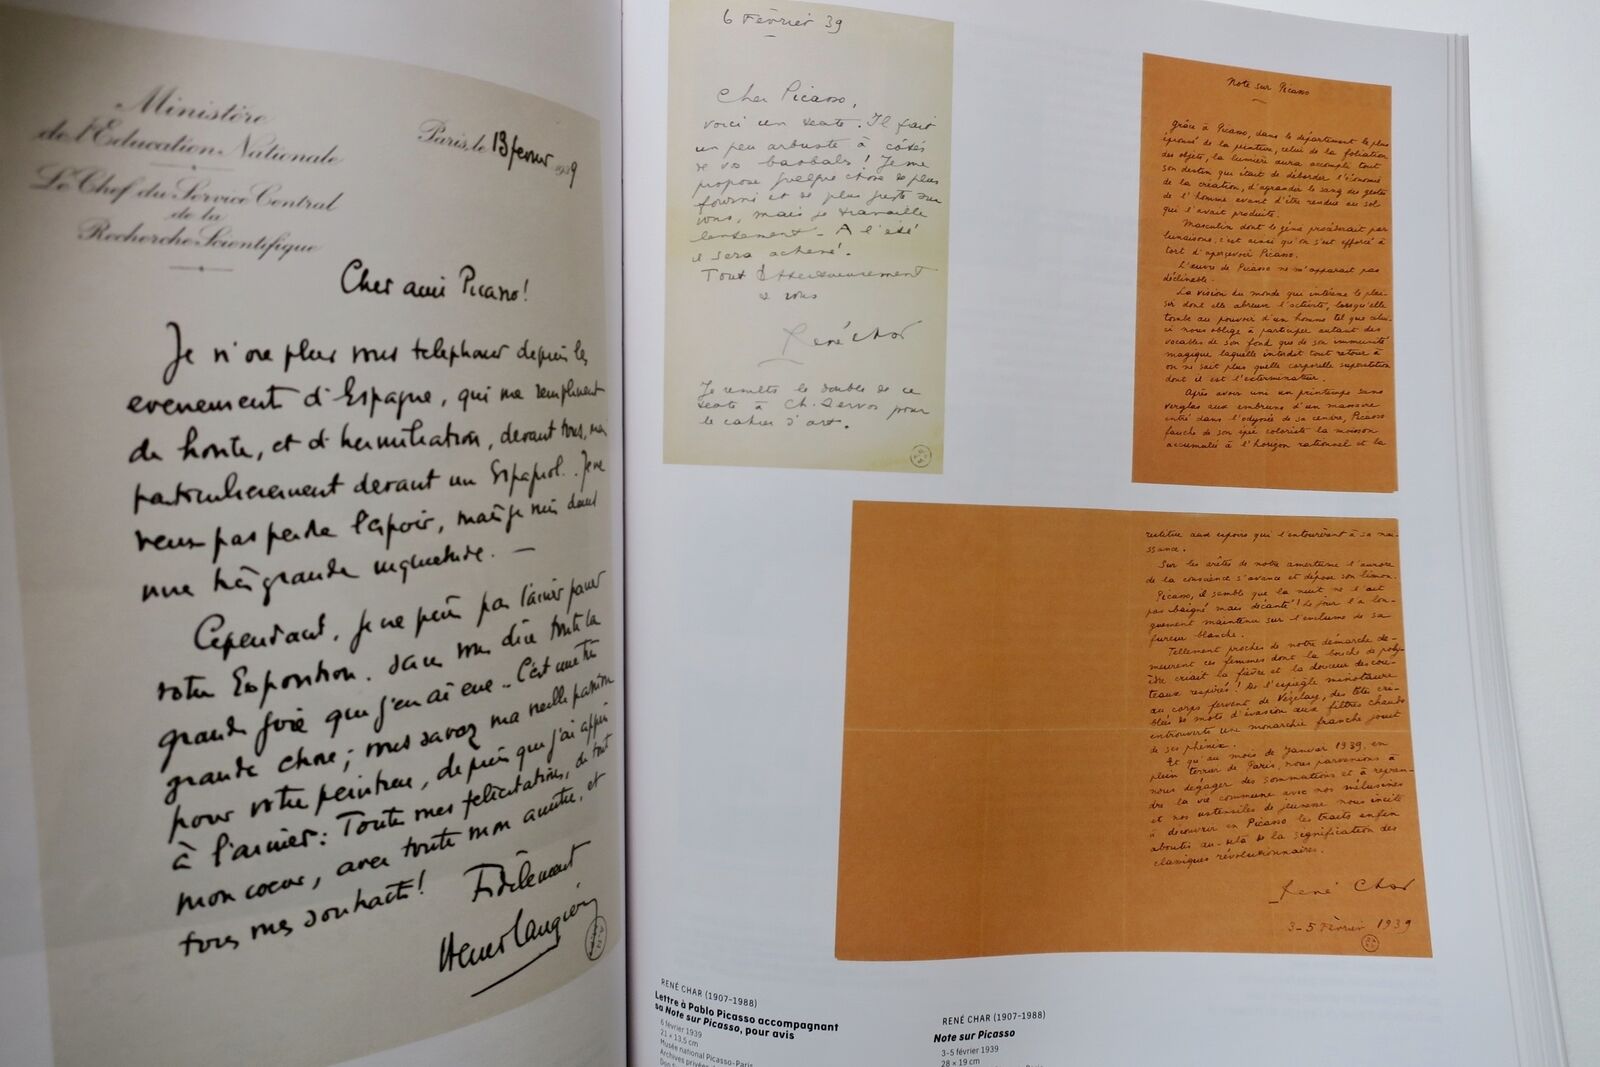 Ministère
de l'Education Nationale
Le Chef du Service Central
de la
Recherche Scientifique
Paris, le 13 fevrier 1939
Cher ami Picasso!
Je n'ose plus vous telephoner depuis les
evenement d'Espagne, qui me remplissent
de honte, et d'humiliation, devant tous, mais
particulierement devant un Espagnol. Je ne
veux pas perdre l'espoir, mais je suis dans
une très grande inquietude. —
Cependant, je ne peux pas laisser passer
votre Exposition. sans vous dire toute la
grande joie que j'en ai eue. C'est une très
grande chose; vous savez ma vieille passion
pour votre peinture, depuis que j'ai appris
à l'aimer: Toutes mes felicitations, de tout
mon coeur, avec toute mon amitié, et
tous mes souhaits! Fidèlement
6 Février 39
Cher Picasso,
voici un texte. Il fait
un peu arbuste à côtés
de vos baobabs! Je me
propose quelque chose de plus
fourni et de plus juste sur
vous, mais je travaille
lentement. A l'été
il sera achevé.
Tout affectueusement
à vous
René Char
Je remets le double de ce
texte à Ch. Zervos pour
le cahier d'art.
Note sur Picasso
Grâce à Picasso, dans le département le plus
éprouvé de la peinture, celui de la foliation
des objets, la lumière aura accompli tout
son destin qui était de déborder l'économie
de la création, d'agrandir le sang des gestes
de l'homme avant d'être rendue au sol
qui l'avait produite.
Masculin dont le génie procèderait par
lunaisons, c'est ainsi qu'on s'est efforcé à
tort d'apercevoir Picasso.
L'œuvre de Picasso ne m'apparait pas
déclinable.
La vision du monde qui intéresse le plai-
sir dont elle abreuve l'activité, lorsqu'elle
tombe au pouvoir d'un homme tel que celui-
ci nous oblige à participer autant des
vocables de son fond que de son immunité
magique laquelle interdit tout retour à
on ne sait plus quelle corporelle superstition
dont il est l'exterminateur.
Après avoir uni un printemps sans
verglas aux embruns d'un massacre
entré dans l'odyssée de sa cendre, Picasso
fauche de son épi coloriste la moisson
accumulée à l'horizon rationnel et la
restitue aux espoirs qui l'entourèrent à sa nais-
sance.
Sur les arêtes de notre amertume l'aurore
de la conscience s'avance et dépose son limon.
Picasso, il semble que la nuit ne l'ait
pas baigné mais décanté! Le jour l'a lon-
guement maintenu sur l'enclume de sa
fureur blanche.
Tellement proches de notre démarche de-
meurent ces femmes dont la bouche de poly-
èdre criait la fièvre et la douceur des cou-
teaux respirés! De l'espiègle minotaure
au corps fervent de Vézelay, des têtes cri-
blées de mots d'évasion aux filtres chauds
entrouverte une monarchie franche jouit
de ses phénix.
Et qu'au mois de Janvier 1939, en
plein terrier de Paris, nous parvenions à
nous dégager des sommations et à repren-
dre la vie commune avec nos mélusines
et nos ustensiles de jeunesse nous incite
à découvrir en Picasso les traits enfin
aboutis au-delà de la signification des
classiques révolutionnaires.
René Char
3-5 Février 1939
RENÉ CHAR (1907-1988)
Lettre à Pablo Picasso accompagnant
sa Note sur Picasso, pour avis
6 février 1939
21 × 13,5 cm
Musée national Picasso-Paris
Archives privées
RENÉ CHAR (1907-1988)
Note sur Picasso
3-5 février 1939
28 × 19 cm